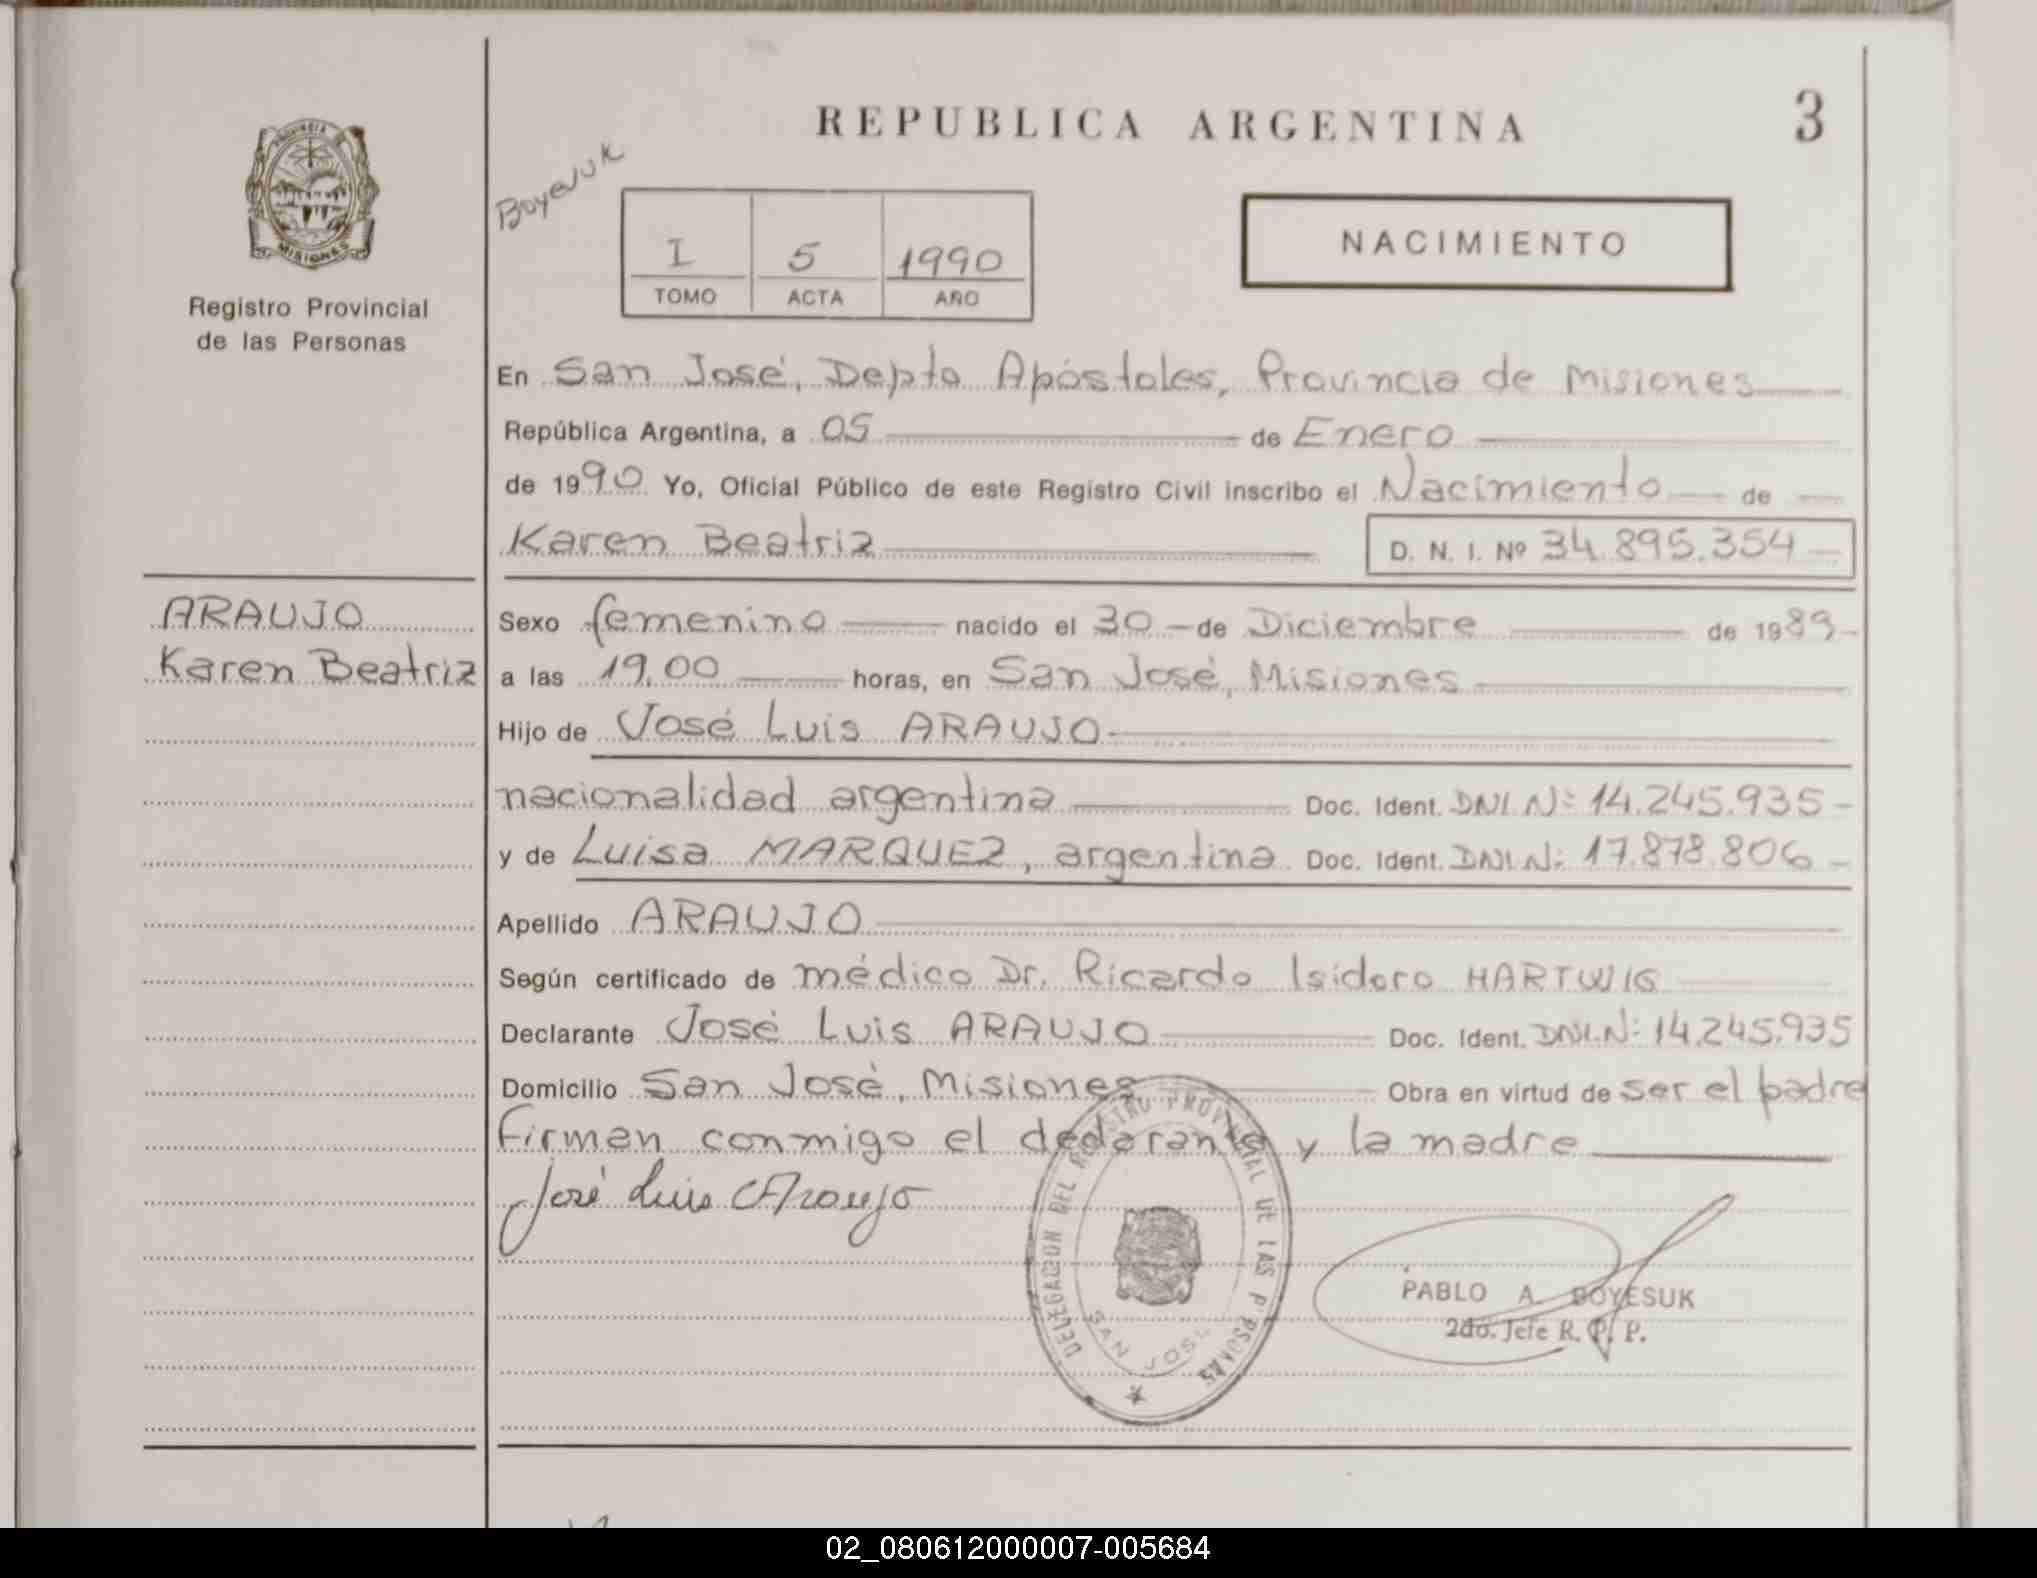 REPUBLICA ARGENTINA
3
PROVINCIA DE
MISIONES
Registro Provincial
de las Personas
Boyesuk
I
5
1990
TOMO
ACTA
AÑO
NACIMIENTO
En San José, Depto Apóstoles, Provincia de Misiones
República Argentina, a 05 de Enero
de 1990 Yo, Oficial Público de este Registro Civil inscribo el Nacimiento de
Karen Beatriz D. N. I. Nº 34.895.354
ARAUJO
Karen Beatriz
Sexo femenino nacido el 30 de Diciembre de 1989
a las 19,00 horas, en San José, Misiones
Hijo de José Luis ARAUJO
nacionalidad argentina Doc. Ident. DNI.Nº 14.245.935
y de Luisa MARQUEZ, argentina Doc. Ident. DNI.Nº 17.878.806
Apellido ARAUJO
Según certificado de médico Dr. Ricardo Isidoro HARTWIG
Declarante José Luis ARAUJO Doc. Ident. DNI.Nº 14.245.935
Domicilio San José, Misiones Obra en virtud de ser el padre
Firman conmigo el declarante y la madre
José Luis Araujo
DELEGACION DEL REGISTRO PROVINCIAL DE LAS PERSONAS
SAN JOSE
PABLO A. BOYESUK
2do. Jefe R. P. P.
02_080612000007-005684